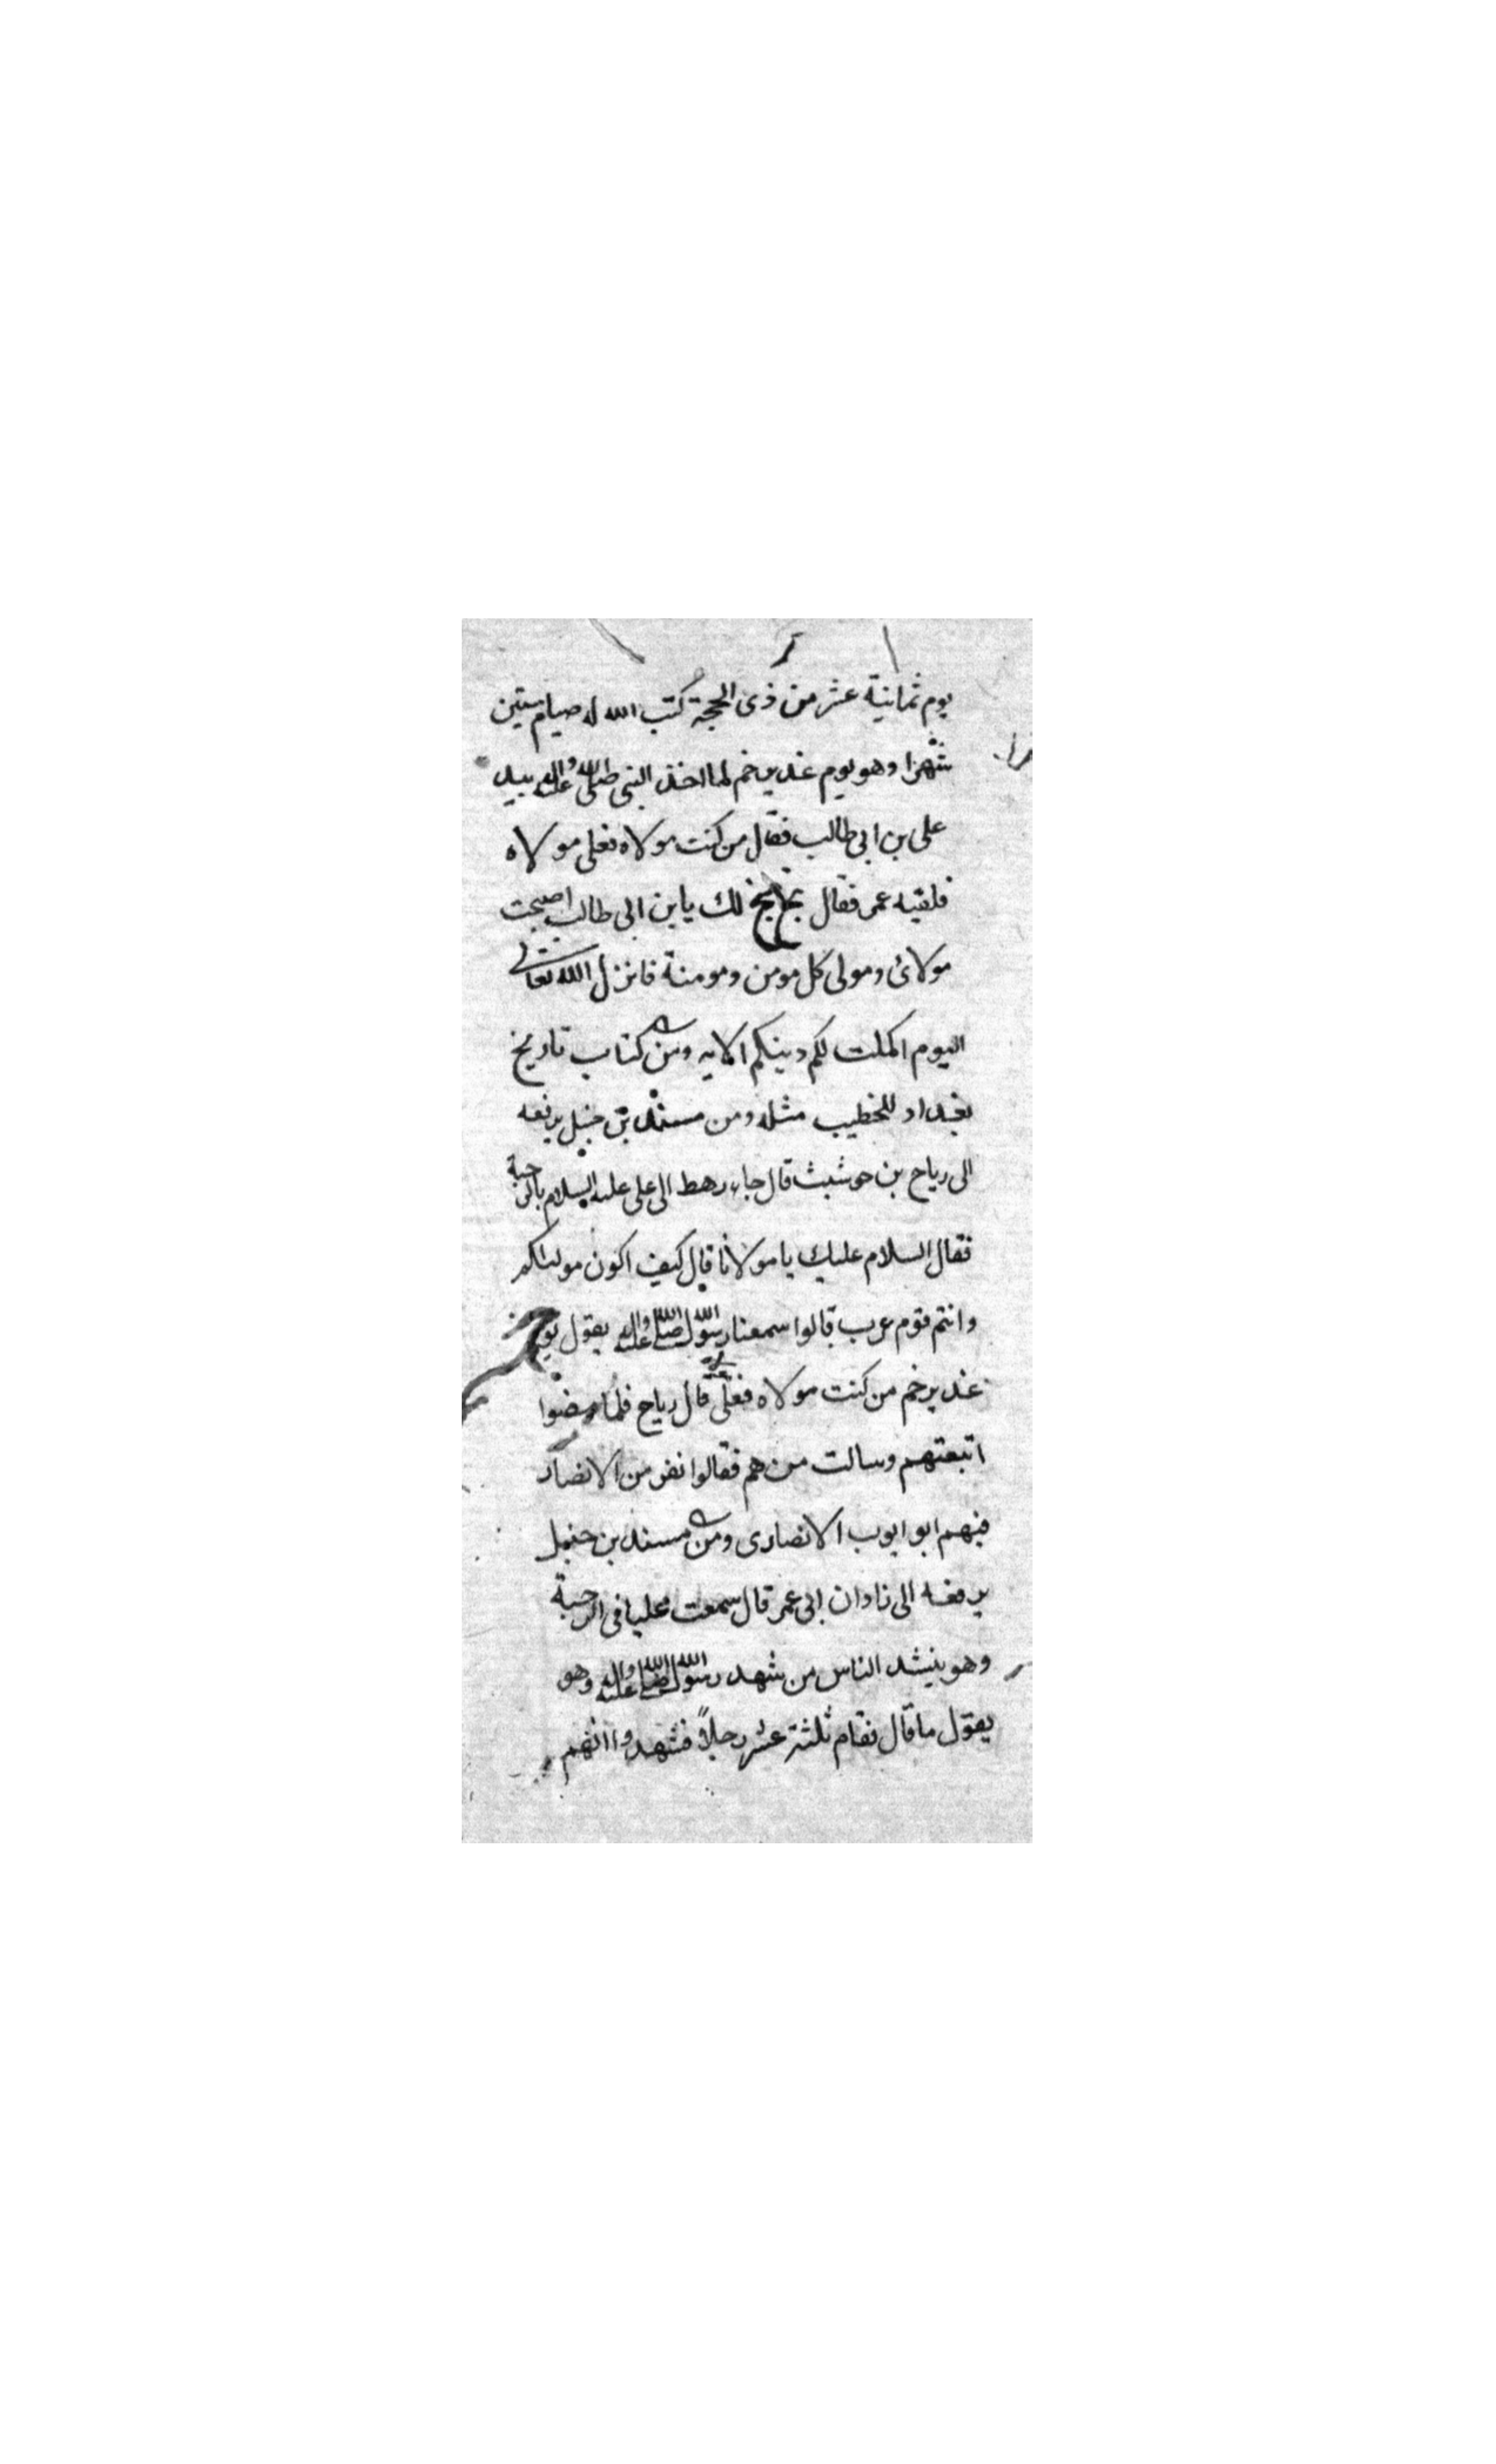 يوم ثمانية عشر من ذى الحجة كتب الله له صيام ستين
شهرا وهو يوم غدير خم لما اخذ النبى صلى الله عليه واله بيد
على بن ابى طالب فقال من كنت مولاه فعلى مولاه
فلقيه عمر فقال بخ بخ لك يا بن ابى طالب اصبحت
مولائ ومولى كل مومن ومومنة فانزل الله تعالى
اليوم اكملت لكم دينكم الايه ومن كتاب تاريخ
بغداد للخطيب مثله ومن مسند بن حنبل يرفعه
الى رياح بن حو شبث قال جاء رهط الى على عليه السلام بالرحبة
فقال السلام عليك يا مولانا قال كيف اكون موليكم
وانتم قوم عرب قالوا سمعنا رسول الله صلى الله عليه واله يقول يوم
غدير خم من كنت مولاه فعلى قال رياح فلما مضوا
اتبعتهم وسالت من هم فقالوا نفر من الانصار
فيهم ابو ايوب الانصارى ومن مسند بن حنبل
يرفعه الى زادان ابى عمر قال سمعت عليا فى الرحبة
وهو ينيشد الناس من شهد رسول الله صلى الله عليه واله وهو
يقول ما قال فقام ثلثة عشر رجلاً فشهدوا انهم